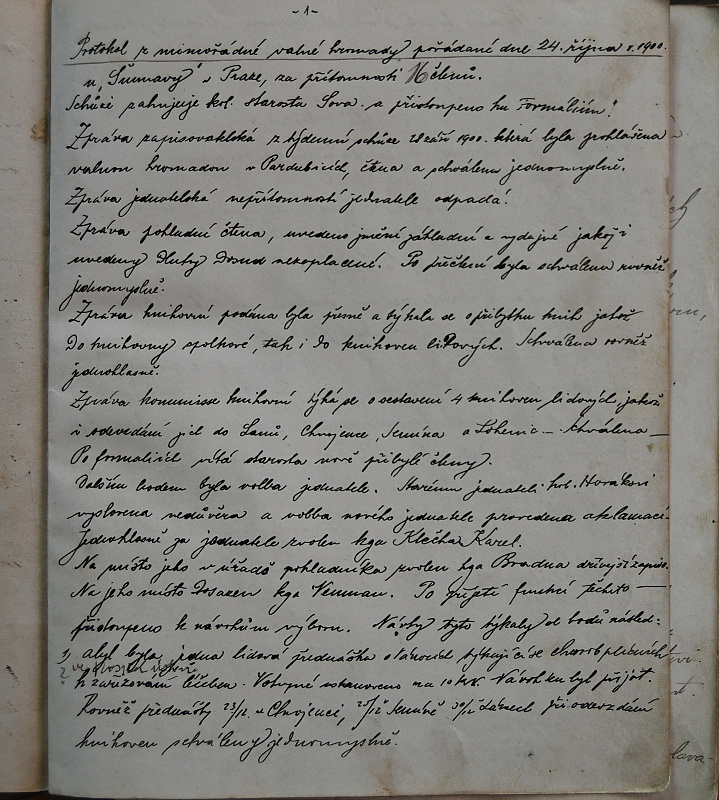 -1-
Protokol z mimořádné valné hromady pořádané dne 24. října r. 1900.
u „Šumavy" v Praze, za přítomnosti 16 členů.
Schůzi zahajuje kol. starosta Sova a přistoupeno ku Formáliím!
Zpráva zapisovatelská z týdenní schůze 28 září 1900. která byla prohlášena
valnou hromadou v Pardubicích, čtena a schválena jednomyslně.
Zpráva jednatelská nepřítomností jednatele odpadá.
Zpráva pokladní čtena, uvedeno jmění základní a výdajné jakož i
uvedeny dluhy dosud nezaplacené. Po přečtení byla schválena rovněž
jednomyslně.
Zpráva knihovní podána byla přesně a týkala se o přibytku knih jakož
do knihovny spolkové, tak i do knihoven lidových. Schválena rovněž
jednohlasně.
Zpráva kommisse knihovní týká se o sestavení 4 knihoven lidových, jakož
i odevzdání jich do Lánů, Chvojence, Semína a Lohenic — schválena —
Po formaliích vítá starosta nově přibylé členy.
Dalším bodem byla volba jednatele. Starému jednateli kol. Horákovi
vyslovena nedůvěra a volba nového jednatele provedena aklamací
jednohlasně za jednatele zvolen kga Klečka Karel.
Na místo jeho v úřadě pokladníka zvolen kga Bradna dřívější zapis.
Na jeho místo dosazen kga Neuman. Po přijetí funkcí těchto —
přistoupeno k návrhům výboru. Návrhy tyto týkaly se bodů násled:
1, aby byla jedna lidová přednáška o Vánocích týkající se chorob plicních
k zařizování léčben. Vstupné ustanoveno na 10 kr. Návrh ku byl přijat.
Rovněž přednášky 23/12. v Chvojenci, Semíně Lánech při odevzdání
knihoven schváleny jednomyslně.